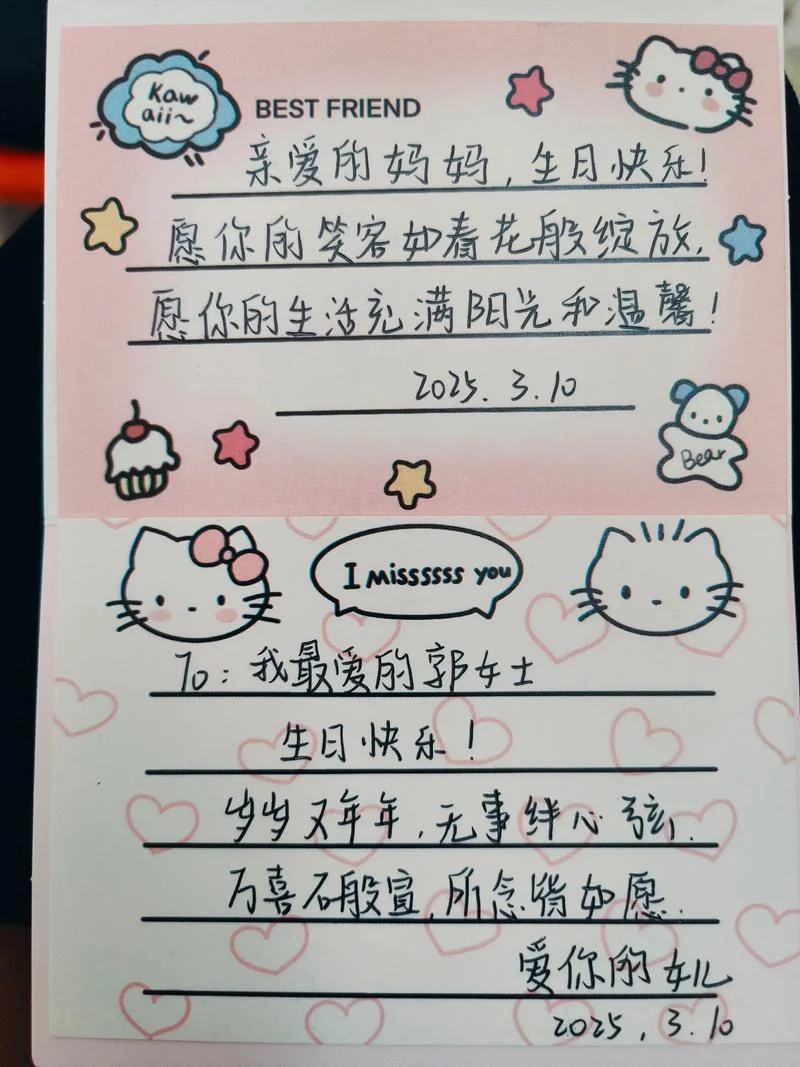 Kaw
aii~
BEST FRIEND
亲爱的妈妈，生日快乐！
愿你的笑容如春花般绽放，
愿你的生活充满阳光和温馨！
2025.3.10
Bear
I missssss you
To：我最爱的郭女士
生日快乐！
岁岁又年年，无事绊心弦，
万喜石般宣，所念皆如愿.
爱你的女儿
2025.3.10